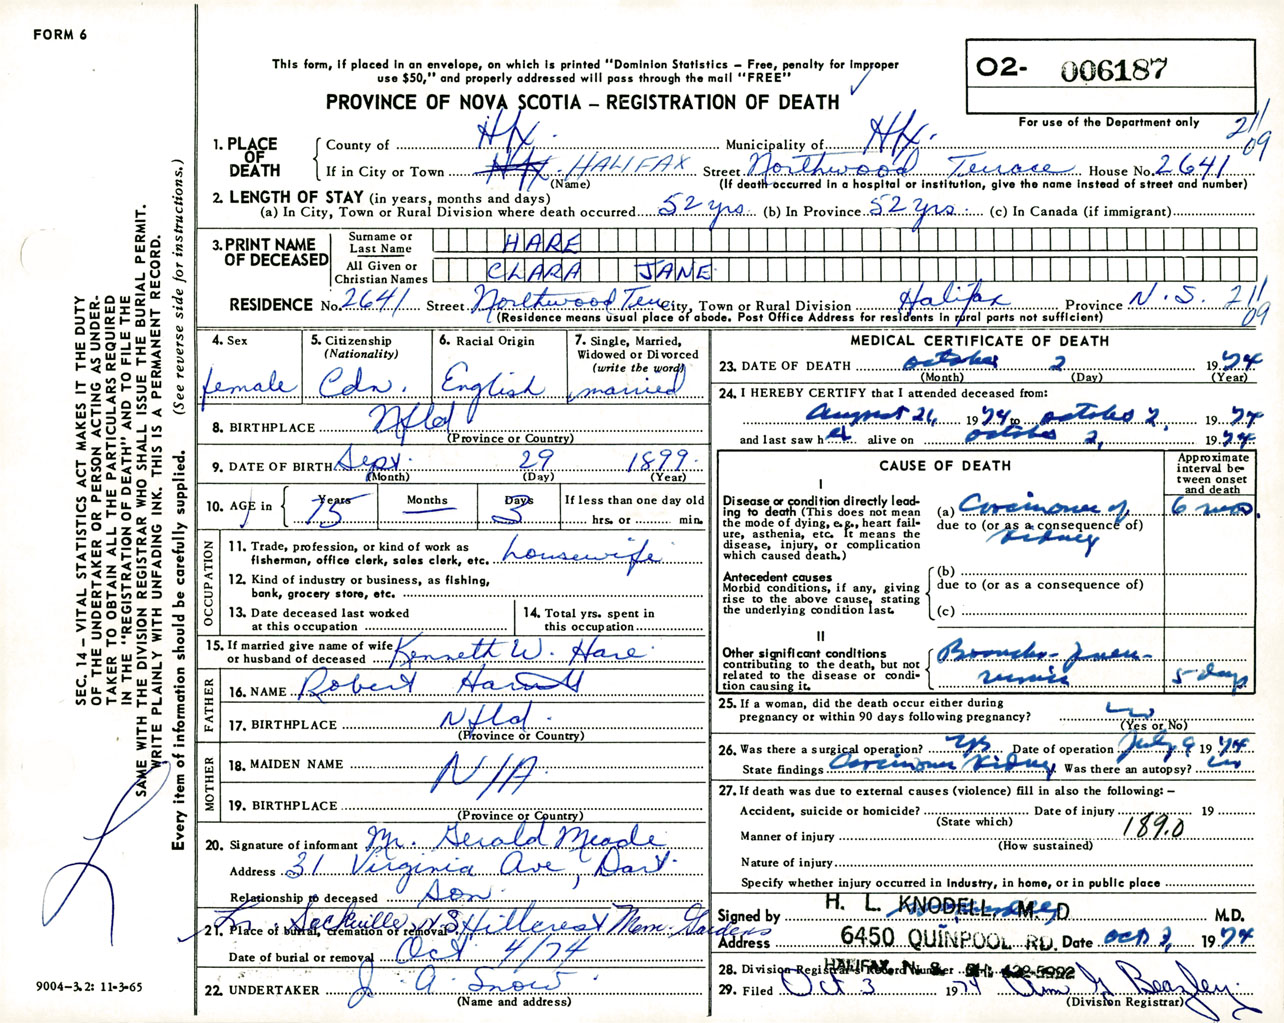 FORM 6
This form, if placed in an envelope, on which is printed "Dominion Statistics – Free, penalty for improper
use $50," and properly addressed will pass through the mail "FREE"
PROVINCE OF NOVA SCOTIA – REGISTRATION OF DEATH
O2- 006187
For use of the Department only
211
09
1. PLACE OF DEATH
County of Hfx. Municipality of Hfx.
If in City or Town HALIFAX Street Northwood Terrace House No. 2641
(Name) (If death occurred in a hospital or institution, give the name instead of street and number)
2. LENGTH OF STAY (in years, months and days)
(a) In City, Town or Rural Division where death occurred 52 yrs. (b) In Province 52 yrs. (c) In Canada (if immigrant)
3. PRINT NAME OF DECEASED
Surname or Last Name HARE
All Given or Christian Names CLARA JANE
RESIDENCE No. 2641 Street Northwood Terr City, Town or Rural Division Halifax Province N.S. 211
09
(Residence means usual place of abode. Post Office Address for residents in rural parts not sufficient)
4. Sex
female
5. Citizenship
(Nationality)
Cdn.
6. Racial Origin
English
7. Single, Married,
Widowed or Divorced
(write the word)
married
8. BIRTHPLACE Nfld
(Province or Country)
9. DATE OF BIRTH Sept. 29 1899
(Month) (Day) (Year)
10. AGE in
Years Months Days If less than one day old
75 — 3 hrs. or min.
OCCUPATION
11. Trade, profession, or kind of work as
fisherman, office clerk, sales clerk, etc. housewife
12. Kind of industry or business, as fishing,
bank, grocery store, etc.
13. Date deceased last worked
at this occupation
14. Total yrs. spent in
this occupation
15. If married give name of wife
or husband of deceased Kenneth W. Hare
FATHER
16. NAME Robert
17. BIRTHPLACE Nfld.
(Province or Country)
MOTHER
18. MAIDEN NAME N/A
19. BIRTHPLACE
(Province or Country)
20. Signature of informant Mr. Gerald Meade
Address 31 Virginia Ave, Dart.
Relationship to deceased Son
Lr. Sackville N.S. Hillcrest Mem. Gardens
21. Place of burial, cremation or removal
Date of burial or removal Oct 4/74
22. UNDERTAKER J. A. Snow
(Name and address)
MEDICAL CERTIFICATE OF DEATH
23. DATE OF DEATH October 2 1974
(Month) (Day) (Year)
24. I HEREBY CERTIFY that I attended deceased from:
August 26, 1974 to October 2, 1974
and last saw her alive on October 2, 1974
CAUSE OF DEATH
Approximate
interval be-
tween onset
and death
I
Disease or condition directly lead-
ing to death (This does not mean
the mode of dying, e.g., heart fail-
ure, asthenia, etc. It means the
disease, injury, or complication
which caused death.)
(a) Carcinoma of 6 mos.
due to (or as a consequence of)
Kidney
Antecedent causes
Morbid conditions, if any, giving
rise to the above cause, stating
the underlying condition last.
(b)
due to (or as a consequence of)
(c)
II
Other significant conditions
contributing to the death, but not
related to the disease or condi-
tion causing it.
Broncho-pneu-
monia 5 days
25. If a woman, did the death occur either during
pregnancy or within 90 days following pregnancy? no
(Yes or No)
26. Was there a surgical operation? Yes Date of operation July 9 1974
State findings Carcinoma Kidney Was there an autopsy? no
27. If death was due to external causes (violence) fill in also the following: –
Accident, suicide or homicide? Date of injury 19
(State which)
189.0
Manner of injury
(How sustained)
Nature of injury
Specify whether injury occurred in industry, in home, or in public place
H. L. KNODELL, M. D
Signed by M.D.
Address 6450 QUINPOOL RD. Date Oct 2, 1974
HALIFAX N. S. PH. 422-5992
28. Division Registrar's Record Number
29. Filed Oct 3 1974 Ann G Beazley
(Division Registrar)
SEC. 14 – VITAL STATISTICS ACT MAKES IT THE DUTY
OF THE UNDERTAKER OR PERSON ACTING AS UNDER-
TAKER TO OBTAIN ALL THE PARTICULARS REQUIRED
IN THE "REGISTRATION OF DEATH" AND TO FILE THE
SAME WITH THE DIVISION REGISTRAR WHO SHALL ISSUE THE BURIAL PERMIT.
WRITE PLAINLY WITH UNFADING INK. THIS IS A PERMANENT RECORD.
Every item of information should be carefully supplied. (See reverse side for instructions.)
9004-3.2: 11-3-65